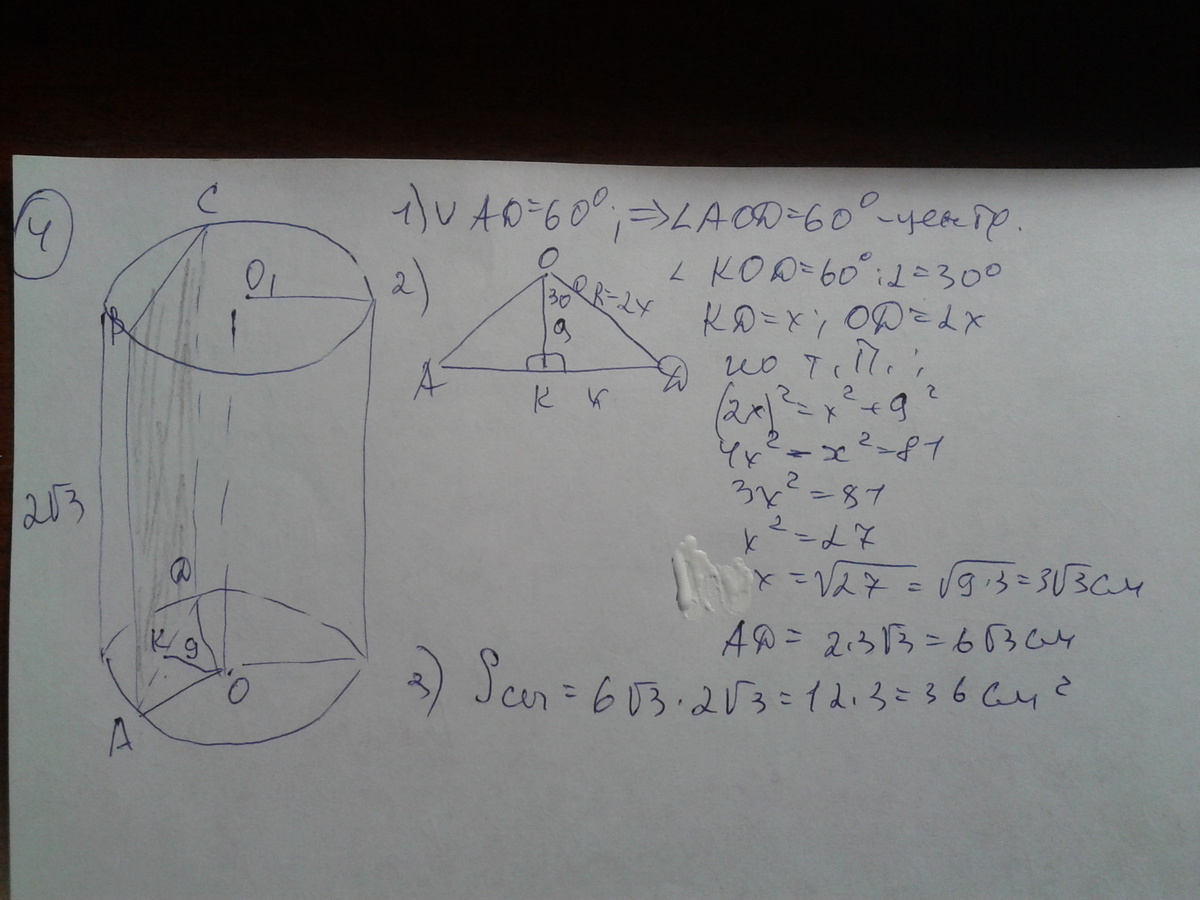 4
C
O₁
B
2√3
D
K
9
O
A
1) ∪ AD=60°; ⇒ ∠AOD=60°-центр.
2)
O
30°
R=2x
9
A
K
x
D
∠ KOD=60°:2=30°
KD=x; OD=2x
по т. П.;
(2x)²=x²+9²
4x²-x²=81
3x²=81
x²=27
x=√27=√9·3=3√3 см
AD=2·3√3=6√3 см
3) Sсеч=6√3·2√3=12·3=36 см²